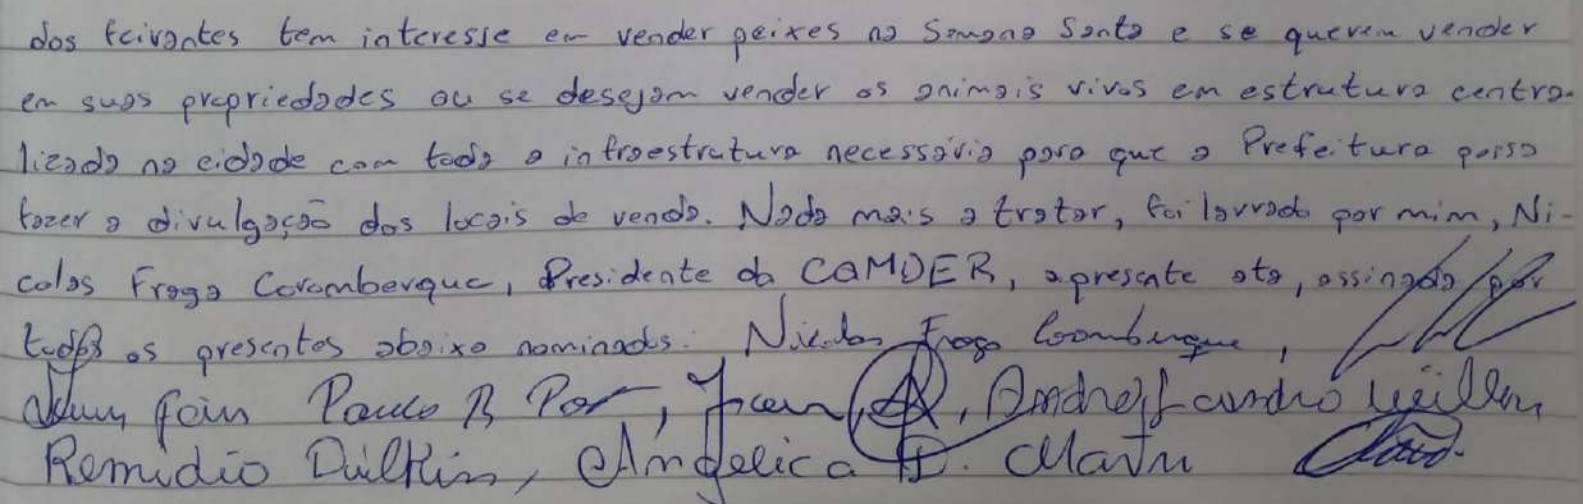 dos feirantes tem interesse em vender peixes na Semana Santa e se querem vender
em suas propriedades ou se desejam vender os animais vivos em estrutura centra-
lizada na cidade com toda a infraestrutura necessária para que a Prefeitura possa
fazer a divulgação dos locais de venda. Nada mais a tratar, foi lavrado por mim, Ni-
colas Fraga Corombergue, Presidente da COMDER, a presente ata, assinada por
todos os presentes abaixo nominados. Nicolas Fraga Corombergue,
Paulo R Por, Jean, André Leandro
Remidio Dulkin, Angelica D.